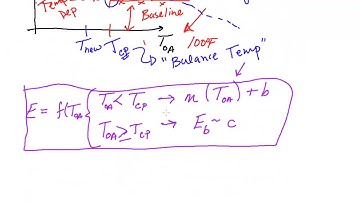 Temp
Dep
Baseline
T_new T_cp T_OA 100°F
"Balance Temp"
E = f(T_OA { T_OA < T_cp → m (T_OA) + b
T_OA ≥ T_cp → E_b ~ c